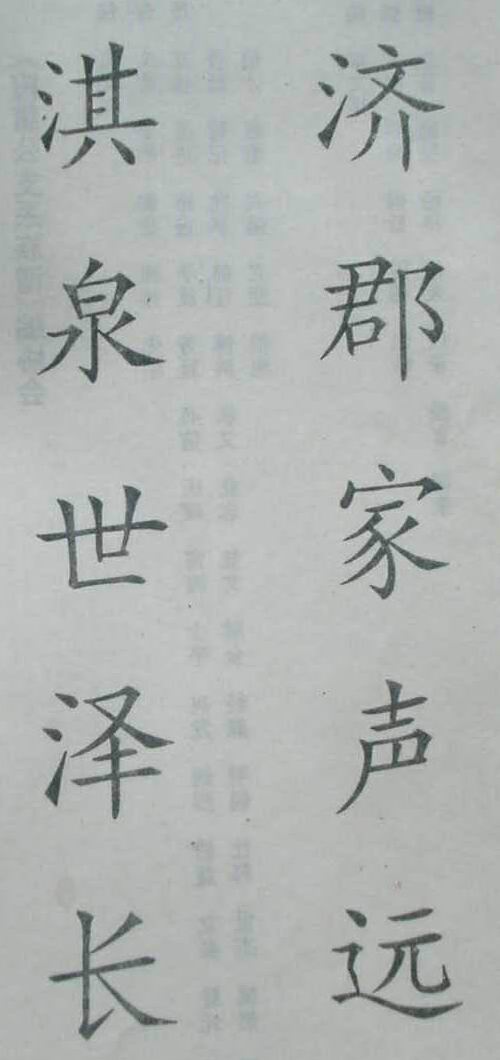 济郡家声远
淇泉世泽长